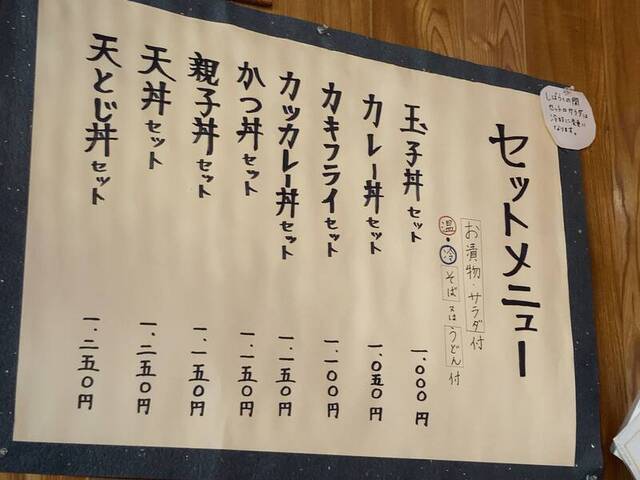 セットメニュー
お漬物・サラダ付
温・冷 そば 又は うどん 付
玉子丼セット 一、〇〇〇円
カレー丼セット 一、〇五〇円
カキフライセット 一、一〇〇円
カツカレー丼セット 一、一五〇円
かつ丼セット 一、一五〇円
親子丼セット 一、一五〇円
天丼セット 一、二五〇円
天とじ丼セット 一、二五〇円
しばらくの間
セットのサラダは
冷奴に変更に
なります。